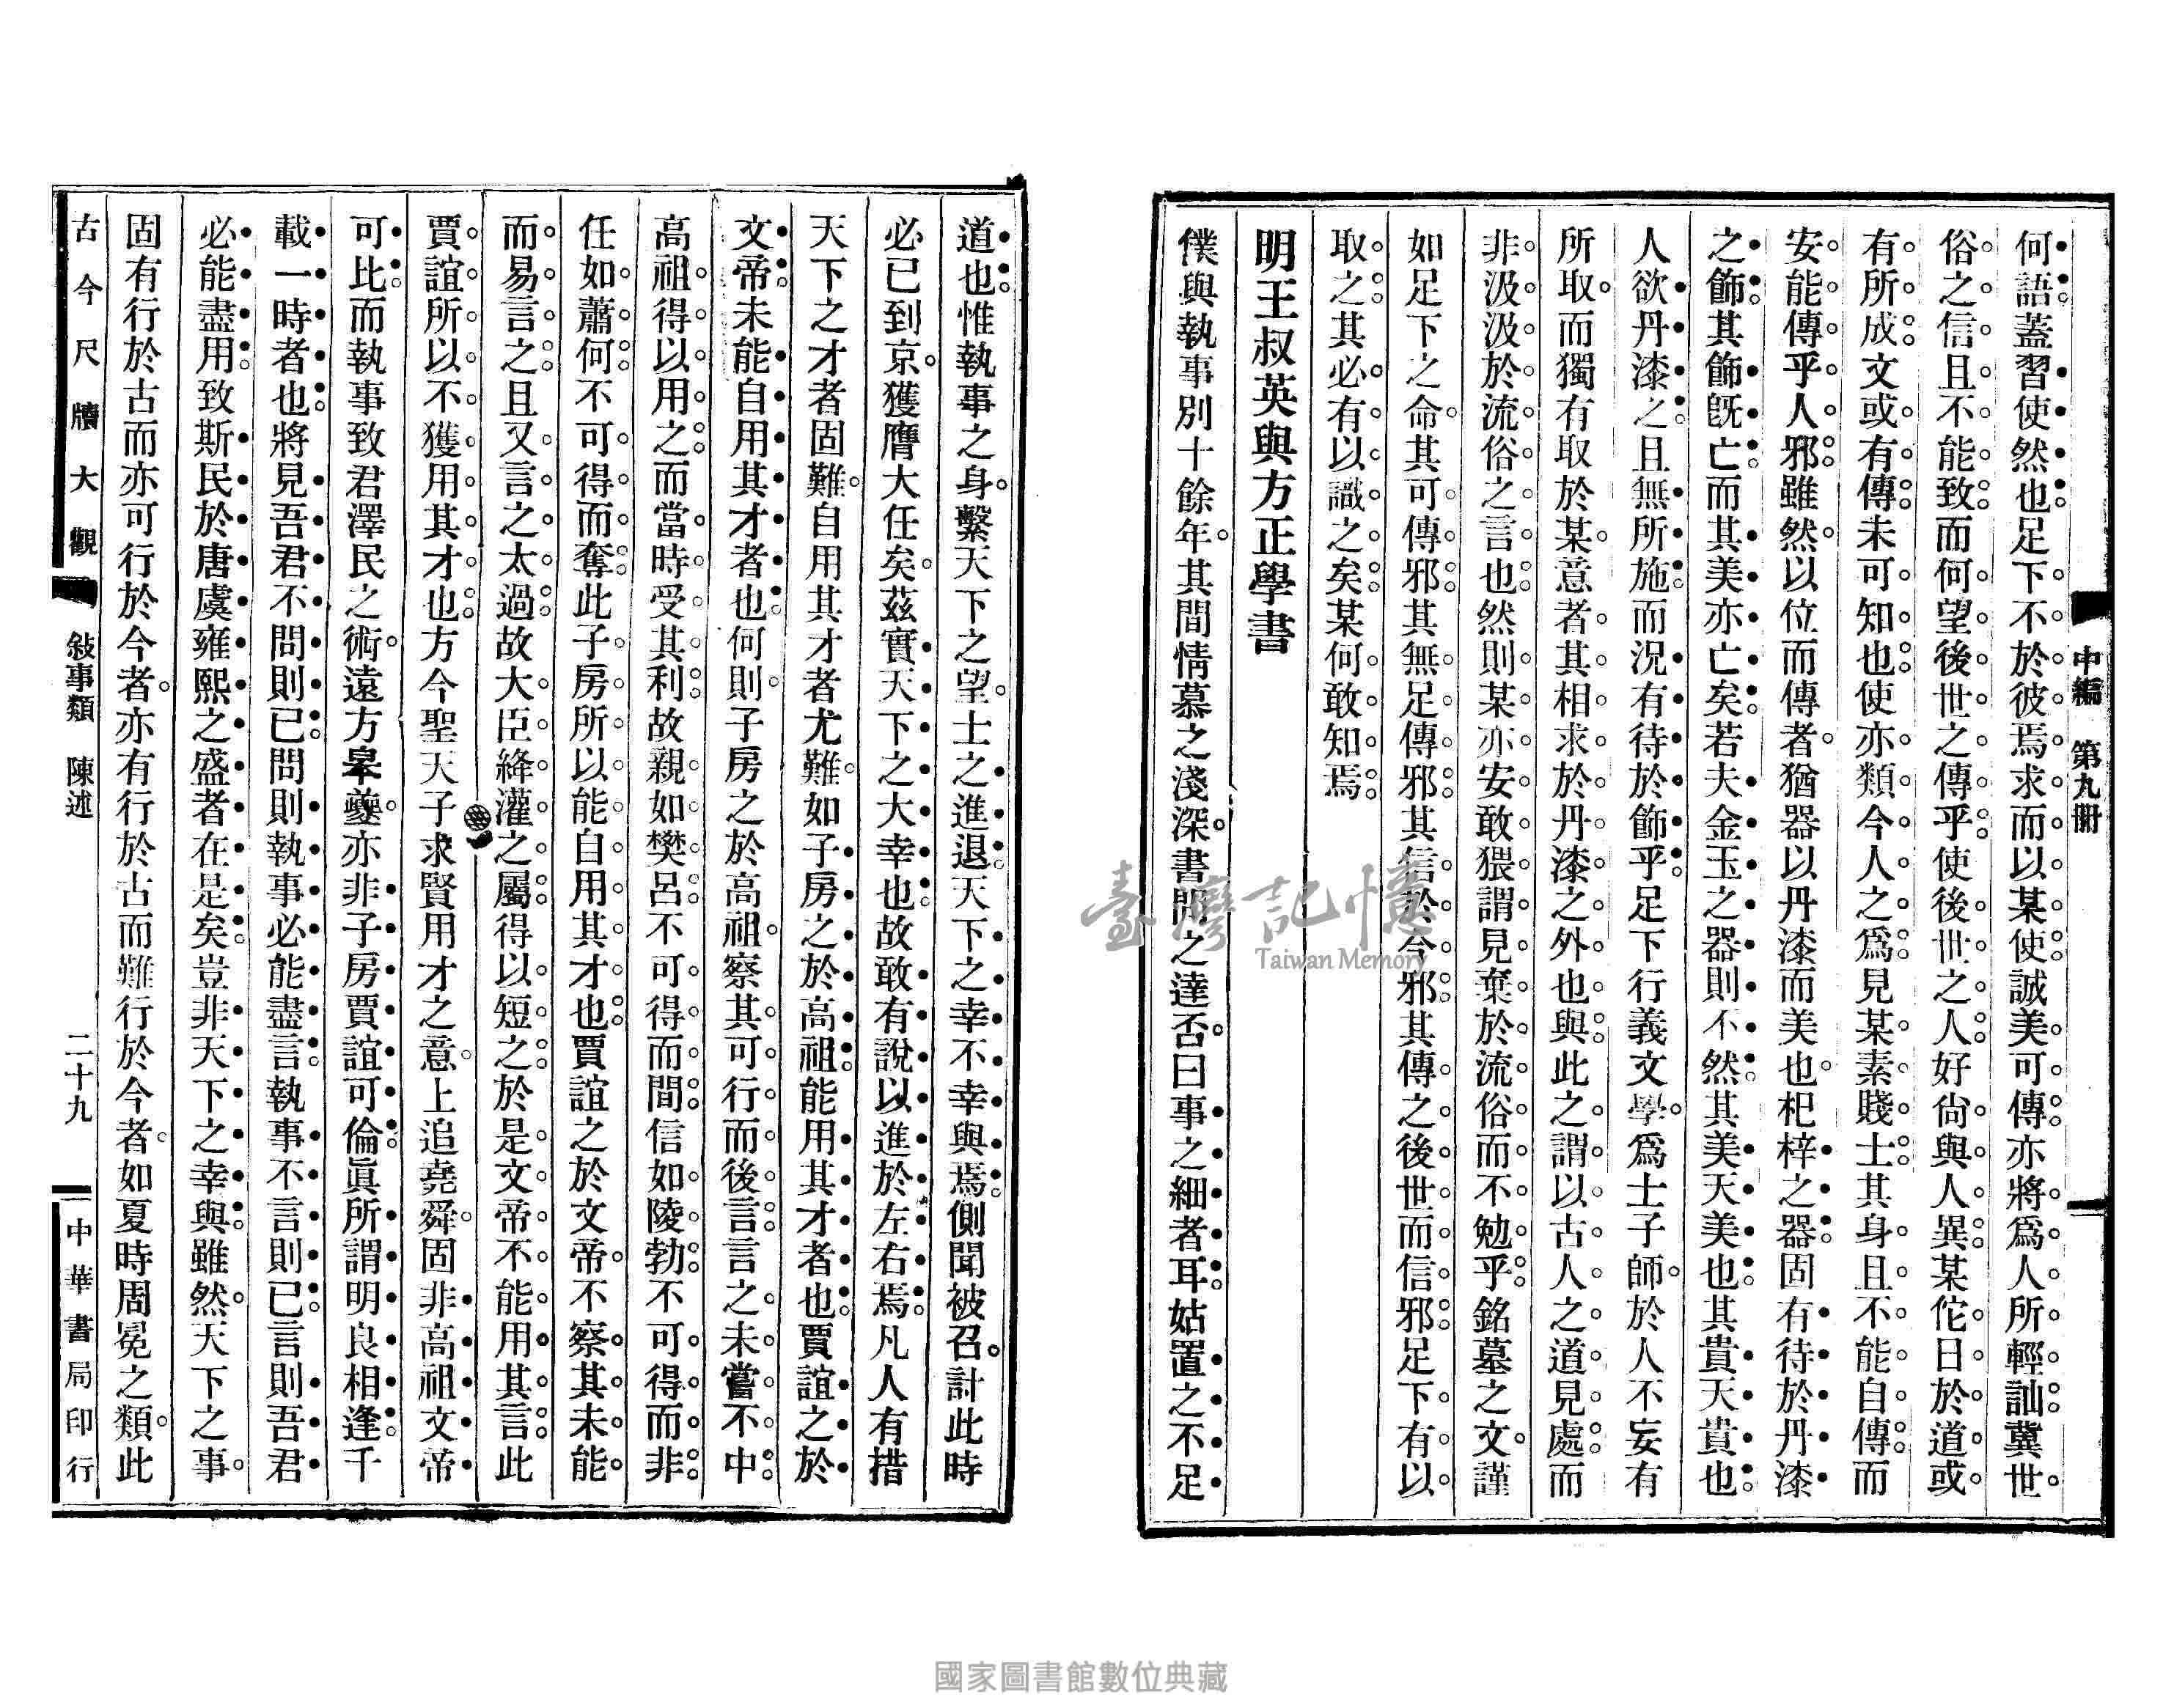 中編　第九冊
何語蓋習使然也足下不於彼焉求而以某使誠美可傳亦將爲人所輕訕冀世
俗之信且不能致而何望後世之傳乎使後世之人好尙與人異某佗日於道或
有所成文或有傳未可知也使亦類今人之爲見某素賤士其身且不能自傳而
安能傳乎人邪雖然以位而傳者猶器以丹漆而美也杞梓之器固有待於丹漆
之飾其飾旣亡而其美亦亡矣若夫金玉之器則不然其美天美也其貴天貴也
人欲丹漆之且無所施而況有待於飾乎足下行義文學爲士子師於人不妄有
所取而獨有取於某意者其相求於丹漆之外也與此之謂以古人之道見處而
非汲汲於流俗之言也然則某亦安敢猥謂見棄於流俗而不勉乎銘墓之文謹
如足下之命其可傳邪其無足傳邪其信於今邪其傳之後世而信邪足下有以
取之其必有以識之矣某何敢知焉
明王叔英與方正學書
僕與執事別十餘年其間情慕之淺深書問之達否曰事之細者耳姑置之不足
道也惟執事之身繫天下之望士之進退天下之幸不幸與焉側聞被召計此時
必已到京獲膺大任矣茲實天下之大幸也故敢有說以進於左右焉凡人有措
天下之才者固難自用其才者尤難如子房之於高祖能用其才者也賈誼之於
文帝未能自用其才者也何則子房之於高祖察其可行而後言言之未嘗不中
高祖得以用之而當時受其利故親如樊呂不可得而間信如陵勃不可得而非
任如蕭何不可得而奪此子房所以能自用其才也賈誼之於文帝不察其未能
而易言之且又言之太過故大臣絳灌之屬得以短之於是文帝不能用其言此
賈誼所以不獲用其才也方今聖天子求賢用才之意上追堯舜固非高祖文帝
可比而執事致君澤民之術遠方皋夔亦非子房賈誼可倫眞所謂明良相逢千
載一時者也將見吾君不問則已問則執事必能盡言執事不言則已言則吾君
必能盡用致斯民於唐虞雍熙之盛者在是矣豈非天下之幸與雖然天下之事
固有行於古而亦可行於今者亦有行於古而難行於今者如夏時周冕之類此
古今尺牘大觀　敍事類　陳述　二十九　中華書局印行
臺灣記憶
Taiwan Memory
國家圖書館數位典藏